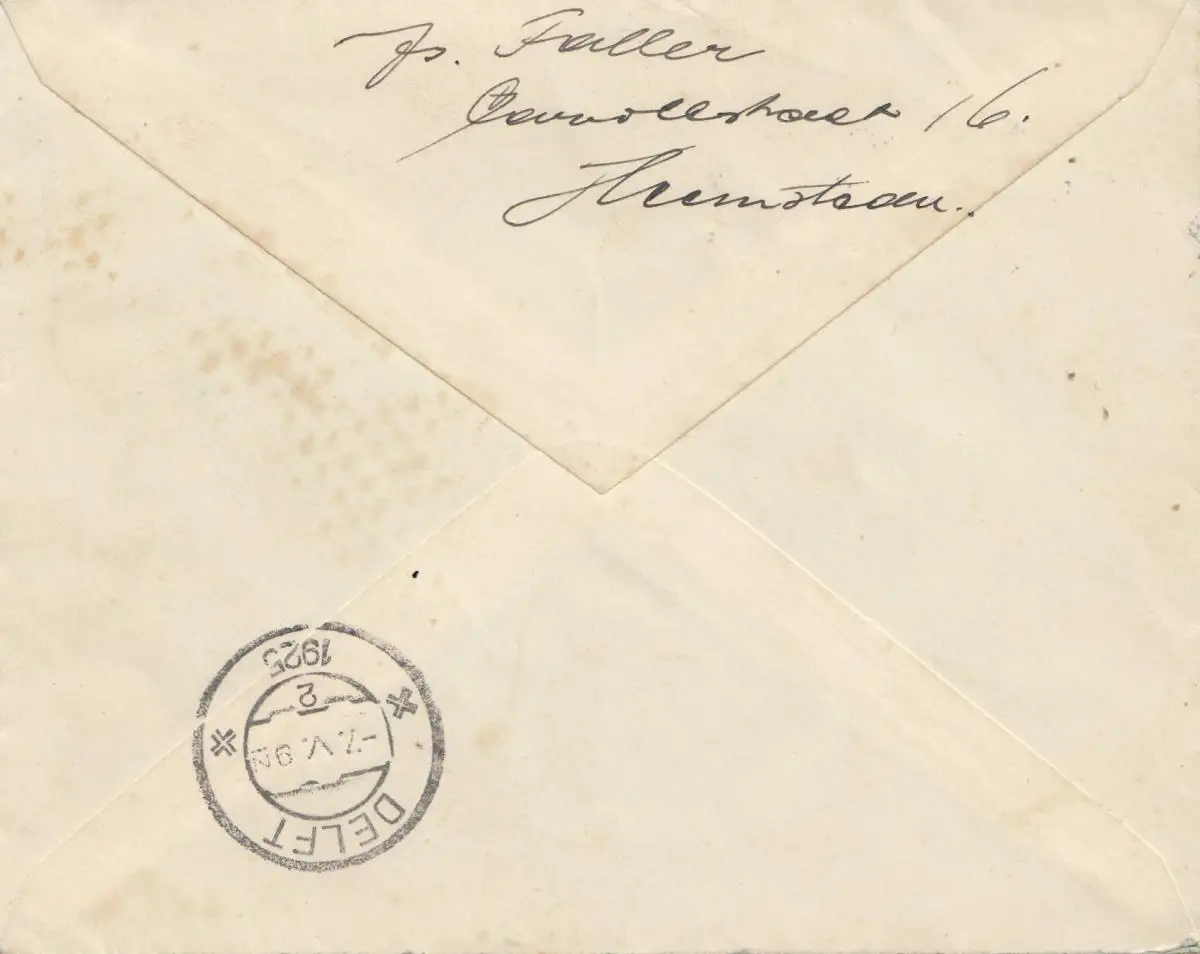 Js. Faller
16.
Heemsteden.
DELFT
-7.V. 9N
2
1925